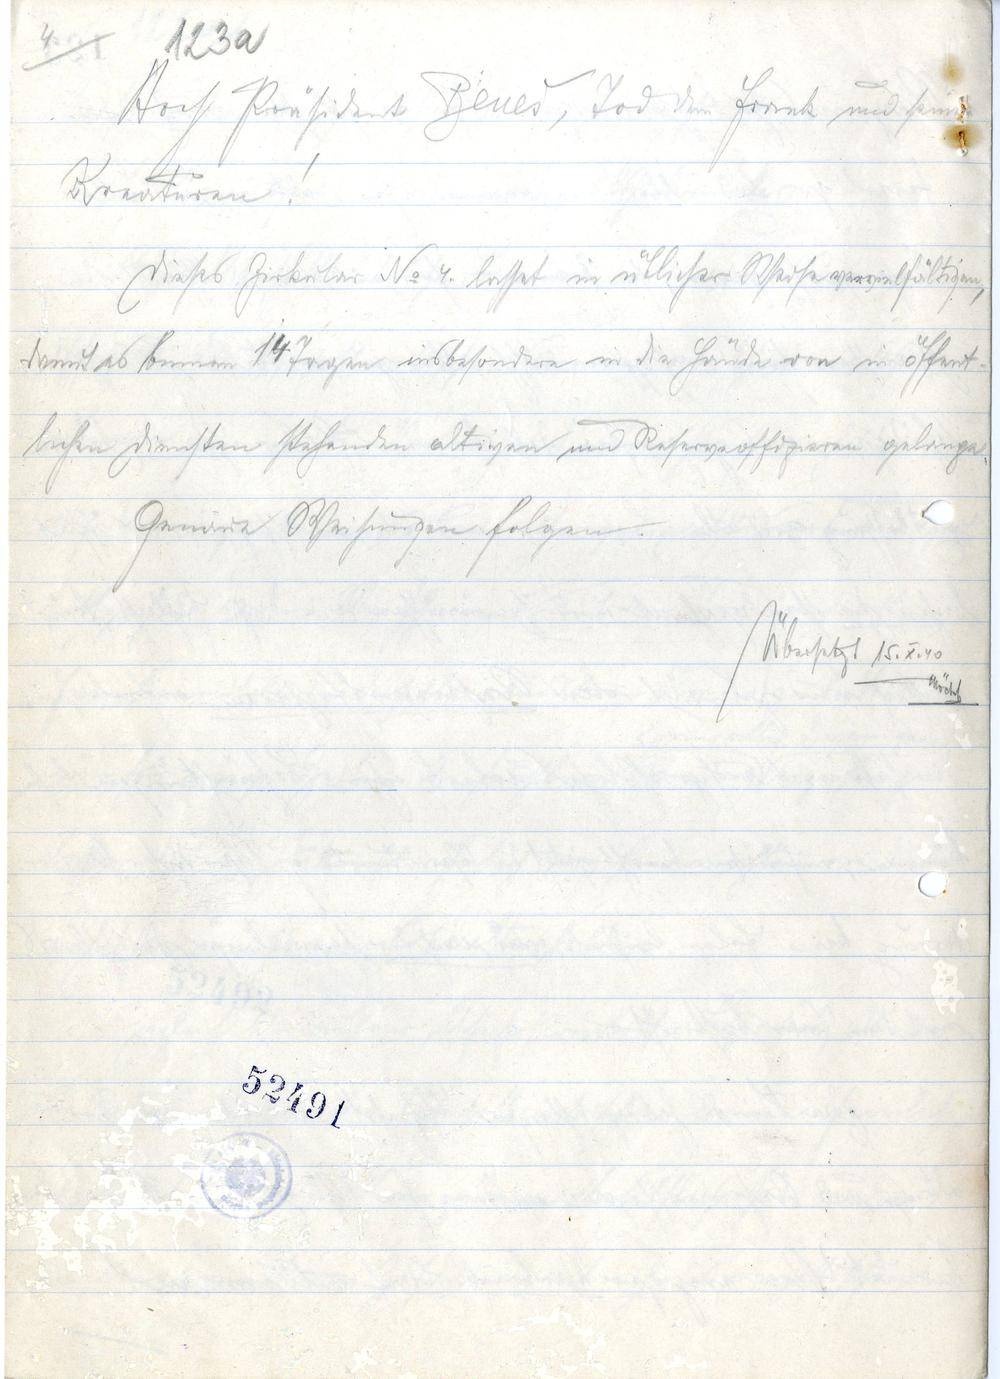 4
123a
Hoch Präsident Beneš, Tod dem Frank und seinen
Kreaturen!
Dieses Zirkular No 4. lasset in üblicher Weise vervielfältigen,
damit es binnen 14 Tagen insbesondere in die Hände von in öffent-
lichen Diensten stehenden aktiven und Reserveoffizieren gelange.
Genaue Weisungen folgen.
Übersetzt 15.X.40
52491